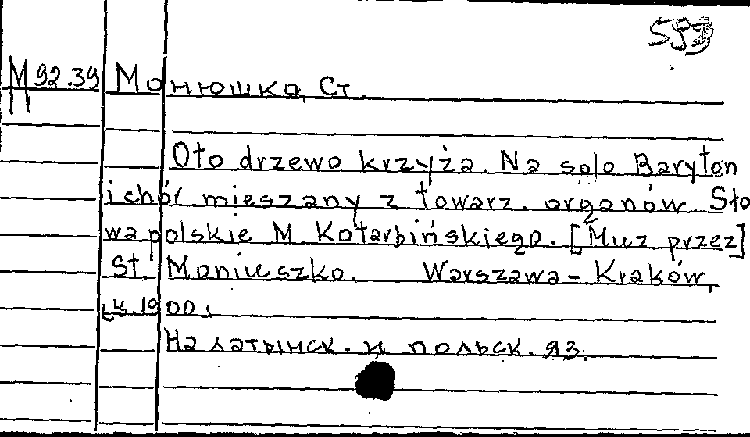 553
М 92.39 Монюшко, Ст.
П
Oto drzewo krzyża. Na solo Baryton
i chór mieszany z towarz. organów. Sło
wa polskie M. Kotarbińskiego. [Muz przez]
St. Moniuszko. Warszawa – Kraków,
[к. 1900.
На латинск. и польск. яз.